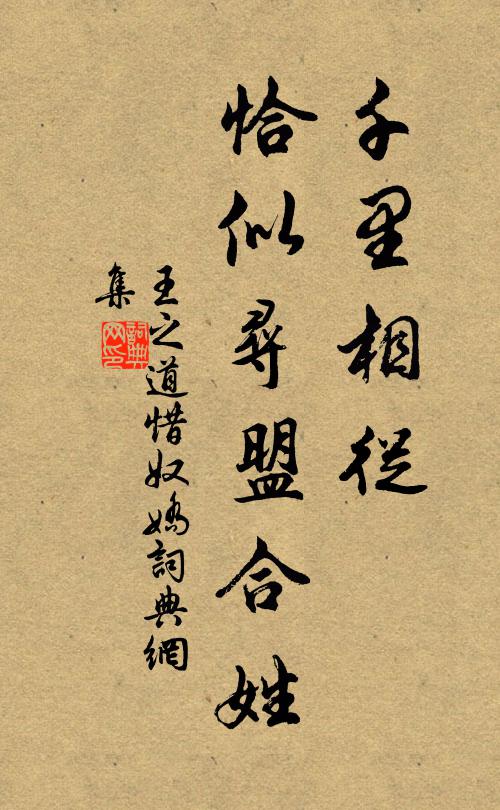 千里相從
恰似尋盟合姓
王之道惜奴嬌詞典網
集
詞典
网印